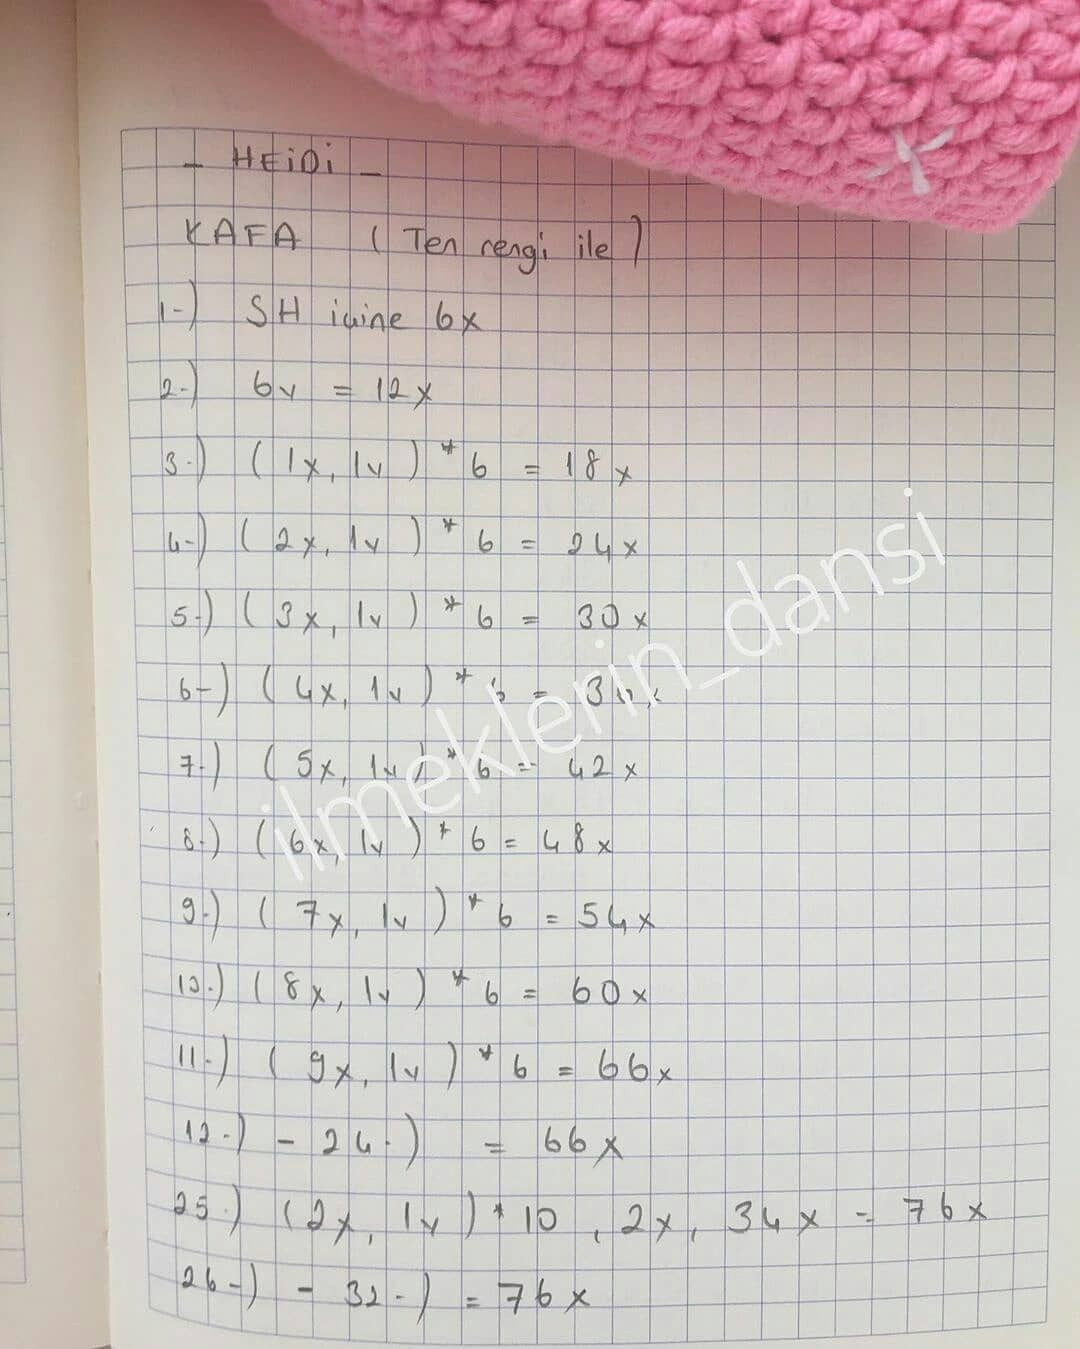 - HEiDi -
KAFA ( Ten rengi ile )
1-) SH içine 6x
2-) 6v = 12x
3-) ( 1x, 1v ) * 6 = 18x
4-) ( 2x, 1v ) * 6 = 24x
5-) ( 3x, 1v ) * 6 = 30x
6-) ( 4x, 1v ) * 6 =
7-) ( 5x, 1v ) * 6 = 42x
8-) ( 6x, 1v ) * 6 = 48x
9-) ( 7x, 1v ) * 6 = 54x
10-) ( 8x, 1v ) * 6 = 60x
11-) ( 9x, 1v ) * 6 = 66x
12-) - 24-) = 66x
25-) (2x, 1v ) * 10 , 2x, 34x = 76x
26-) - 32-) = 76x
ilmeklerin_dansi